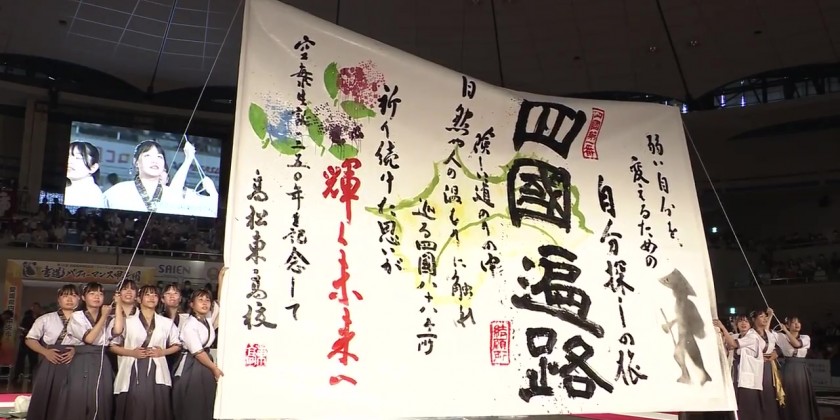 弱い自分を、
変えるための
自分探しの旅
四國遍路
険しい道のりの中
自然や人の温もりに触れ
巡る四國八十八ヶ所
祈り続けた思いが
輝く未来へ
空海生誕一二五〇年を記念して
高松東高校
結願所
SAIEN